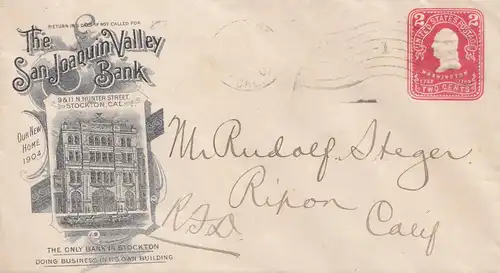 RETURN IN 5 DAYS IF NOT CALLED FOR
The
San Joaquin Valley
Bank
9 & 11 N. HUNTER STREET,
STOCKTON, CAL.
OUR NEW
HOME
1904
THE ONLY BANK IN STOCKTON
DOING BUSINESS IN ITS OWN BUILDING
CAL
2 2
UNITED STATES POSTAGE
WASHINGTON
TWO CENTS
Mr Rudolf Steger.
Ripon
Calif
R.F.D.